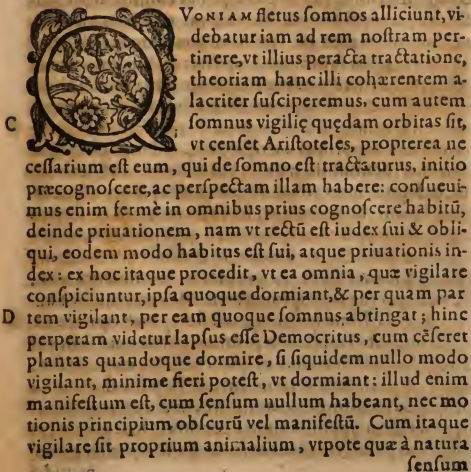 QVONIAM fletus somnos alliciunt, vi-
debatur iam ad rem nostram per-
tinere, vt illius peracta tractatione,
theoriam hanc illi cohærentem a-
lacriter susciperemus, cum autem
C somnus vigilię quędam orbitas sit,
vt censet Aristoteles, propterea ne
cessarium est eum, qui de somno est tractaturus, initio
præcognoscere, ac perspectam illam habere: consueui-
mus enim fermè in omnibus prius cognoscere habitũ,
deinde priuationem, nam vt rectũ est iudex sui & obli-
qui, eodem modo habitus est sui, atque priuationis in-
dex: ex hoc itaque procedit, vt ea omnia, quæ vigilare
conspiciuntur, ipsa quoque dormiant, & per quam par
D tem vigilant, per eam quoque somnus abtingat; hinc
perperam videtur lapsus esse Democritus, cum cẽseret
plantas quandoque dormire, si siquidem nullo modo
vigilant, minime fieri potest, vt dormiant: illud enim
manifestum est, cum sensum nullum habeant, nec mo
tionis principium obscurũ vel manifestũ. Cum itaque
vigilare sit proprium animalium, vtpote quæ à natura
sensum